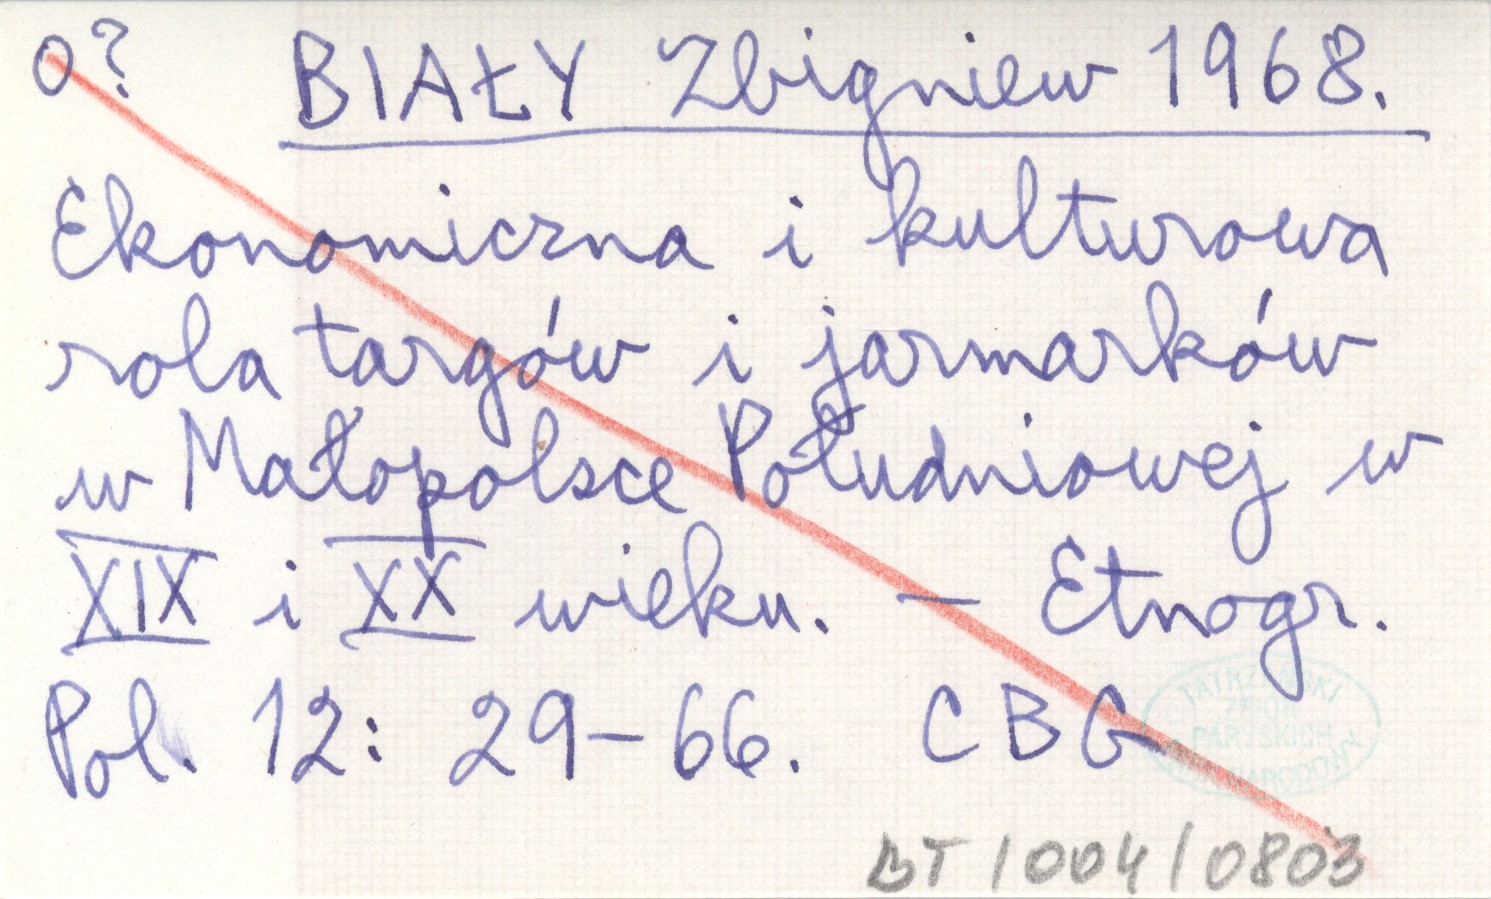 o? BIAŁY Zbigniew 1968.
Ekonomiczna i kulturowa
rola targów i jarmarków
w Małopolsce Południowej w
XIX i XX wieku. — Etnogr.
Pol. 12: 29-66. CBG
TATRZAŃSKI
ZBIÓR
PARYSKICH
NARODOWY
BT/004/0803